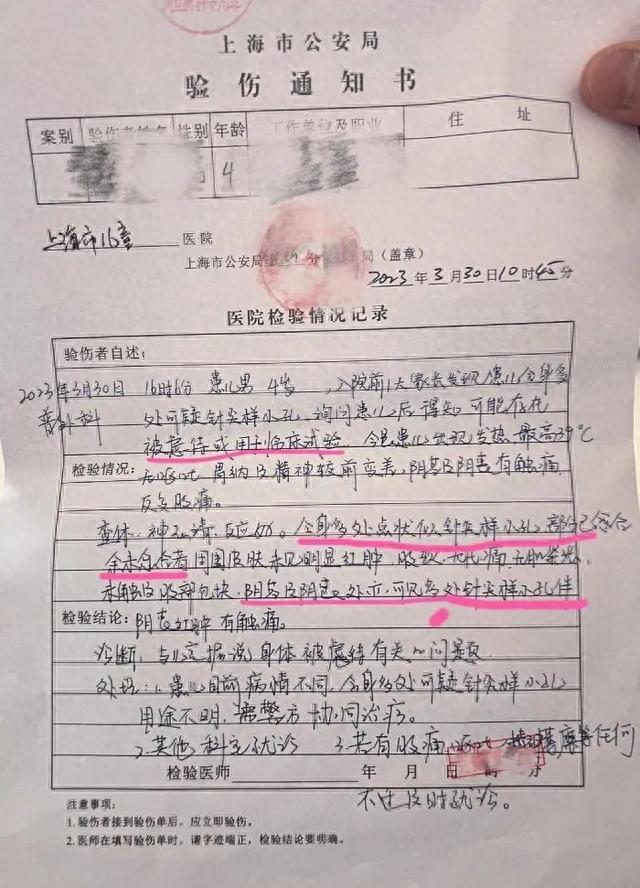 上海市公安局
验伤通知书
案别 验伤者姓名 性别 年龄 工作单位及职业 住址
4
上海市儿童医院
上海市公安局 分局（盖章）
2023年3月30日10时45分
医院检验情况记录
验伤者自述：
2023年3月30日 16时6分 患儿男 4岁 ，入院前1天家长发现患儿全身多
普外科 处可疑针尖样小孔，询问患儿后得知可能存在
被虐待或用于临床试验 今患儿出现发热 最高39℃
检验情况： 胃纳及精神较前变差，阴茎及阴囊有触痛
反复腹痛。
查体：神志清，反应好。全身多处点状似针尖样小孔 部分已愈合
余未愈合者 周围皮肤未见明显红肿，腹软，无压痛，
未触及腹部包块，阴茎及阴囊 处亦可见多处针尖样小孔伴
检验结论： 阴茎红肿 有触痛。
诊断： 身体被虐待有关的问题
处理：1.患儿目前病情不同，全身多处可疑针尖样小孔
用途不明，需警方协同治疗。
2.其他科室就诊 3.若有腹痛 等任何
检验医师 年 月 日 时 分
不适及时就诊。
注意事项：
1. 验伤者接到验伤单后，应立即验伤。
2. 医师在填写验伤单时，请字迹端正，检验结论要明确。